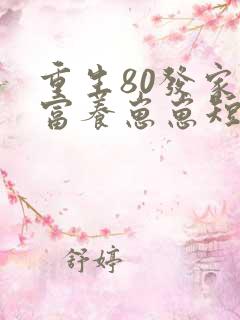 重生80發家
富養崽崽短
舒婷